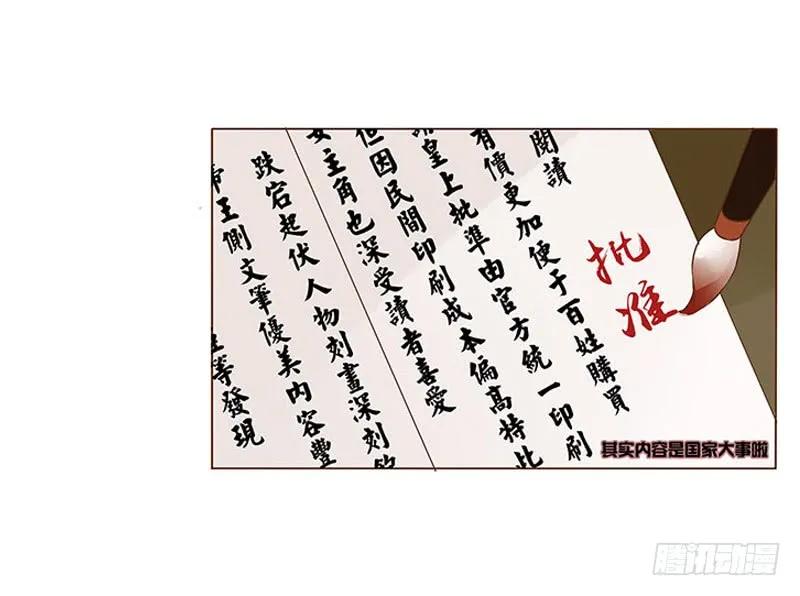 等發現
帝王側文筆優美內容豐
跌宕起伏人物刻畫深刻飽
女主角也深受讀者喜愛
但因民間印刷成本偏高特此
請皇上批準由官方統一印刷
有價更加便于百姓購買
閱讀
批准
其实内容是国家大事啦
腾讯动漫